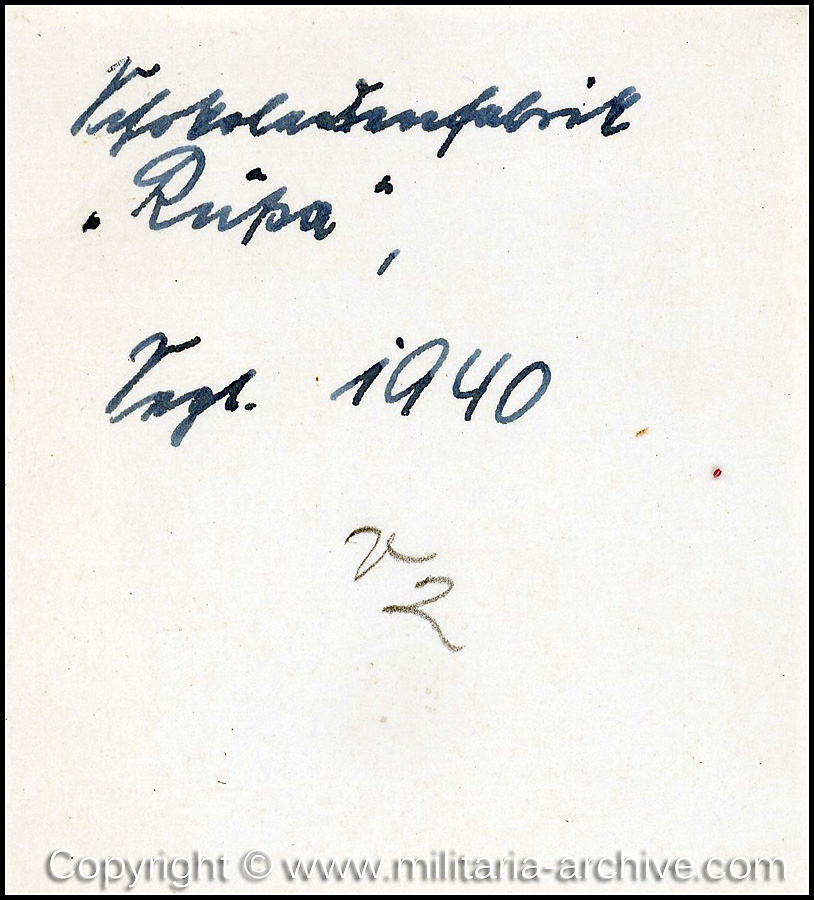 Schokoladenfabrik
„Rüpa“,
Sept. 1940
2
Copyright © www.militaria-archive.com